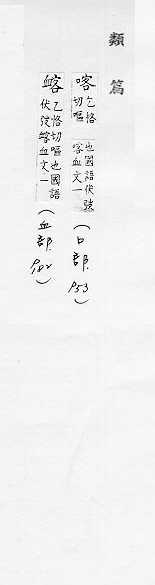 類篇
喀 乞格切嘔也國語伏弢喀血文一 (口部 P53)
衉 乞格切嘔也國語伏弢衉血文一 (血部 P182)